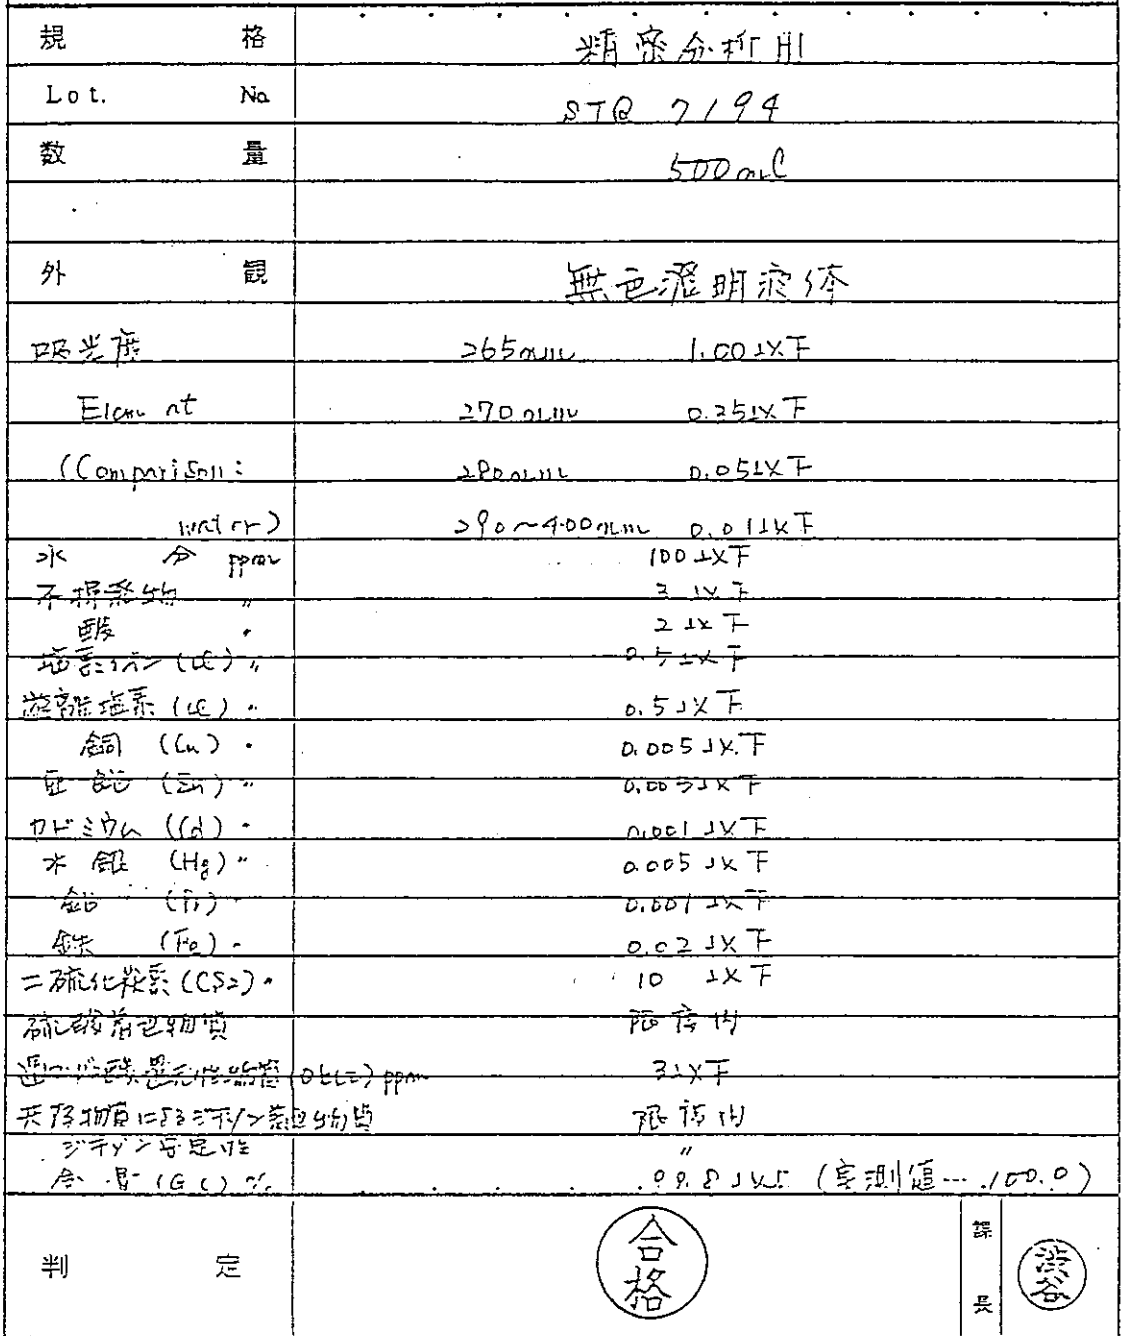 規 格 精密分析用
Lot. No. STQ 7194
数 量 500ml
外 観 無色澄明液体
吸光度 265nm 1.00以下
Element 270nm 0.25以下
(Comparison: 280nm 0.05以下
water) 290~400nm 0.01以下
水 分 ppm 100以下
不揮発物 〃 3以下
酸 〃 2以下
塩素イオン(Cl) 〃 0.5以下
遊離塩素(Cl) 〃 0.5以下
銅 (Cu) 〃 0.005以下
亜鉛 (Zn) 〃 0.003以下
カドミウム (Cd) 〃 0.001以下
水銀 (Hg) 〃 0.005以下
鉛 0.001以下
鉄 (Fe) 〃 0.02以下
二硫化炭素(CS2) 〃 10 以下
硫酸着色物質 限度内
ppm 3以下
ジチゾン着色物質 限度内
ジチゾン安定性 〃
含量(GC) % 99.8以上 (実測値…100.0)
判 定 合格 課長 渋谷